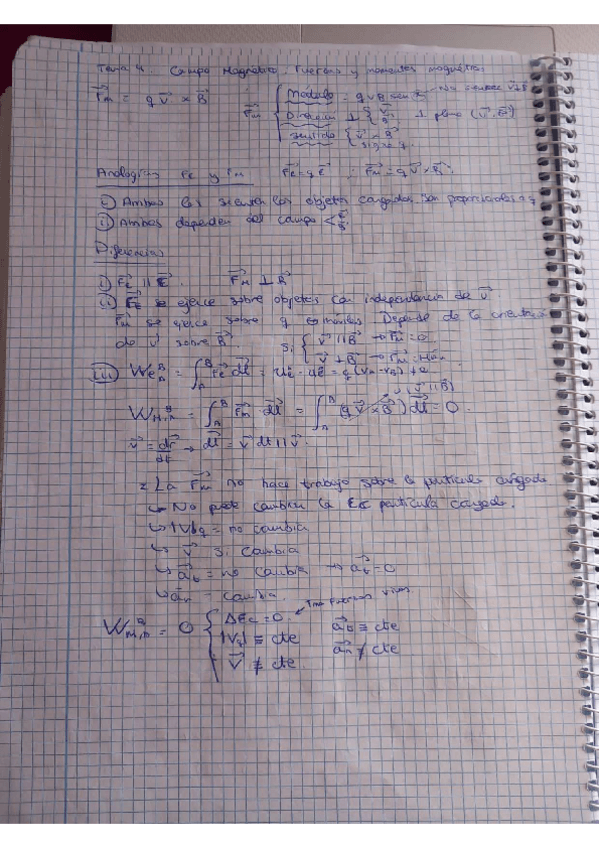 Tema 4. Campo Magnético. Fuerzas y momentos magnéticos
Fm = q v × B Fm { Módulo = q v B sen
Dirección ⊥ { v B ⊥ plano (v, B)
Sentido { v × B
signo q
Analogías Fe y Fm Fe = q E ; Fm = q v × B.
i) Ambos las sienten los objetos cargados. Son proporcionales a q
ii) Ambos dependen del campo < E B
Diferencias
i) Fe ∥ E. Fm ⊥ B
ii) Fe se ejerce sobre objetos con independencia de v
Fm se ejerce sobre q en Depende de la orientación
de v sobre B. Si { v ∥ B → Fm = 0
v ⊥ B → Fm = Máx
iii) We = ∫ Fe dl = = q (VA - VB) ≠ 0
WM = ∫ Fm · dl = ∫ (q v × B) dl = 0.
v = dr/dt → dl = v dt ∥ v.
La Fm no hace trabajo sobre la partícula cargada
↳ No puede cambiar la Ec partícula cargada.
↳ |V|q = no cambia
↳ v si cambia
↳ at = no cambia → at = 0
↳ an = cambia.
Wm = 0 { ΔEc = 0. ← Tma Fuerzas vivas
|Vq| ≡ cte
V ≢ cte